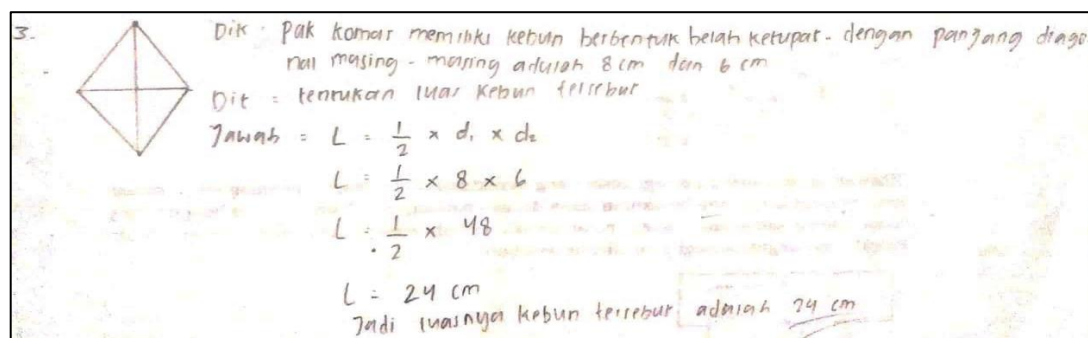 3. Dik : Pak komar memiliki kebun berbentuk belah ketupat. dengan panjang diago
nal masing - masing adalah 8 cm dan 6 cm
Dit = tentukan luas kebun tersebut
Jawab = L = 1/2 × d₁ × d₂
L = 1/2 × 8 × 6
L = 1/2 × 48
L = 24 cm
Jadi luasnya kebun tersebut adalah 24 cm